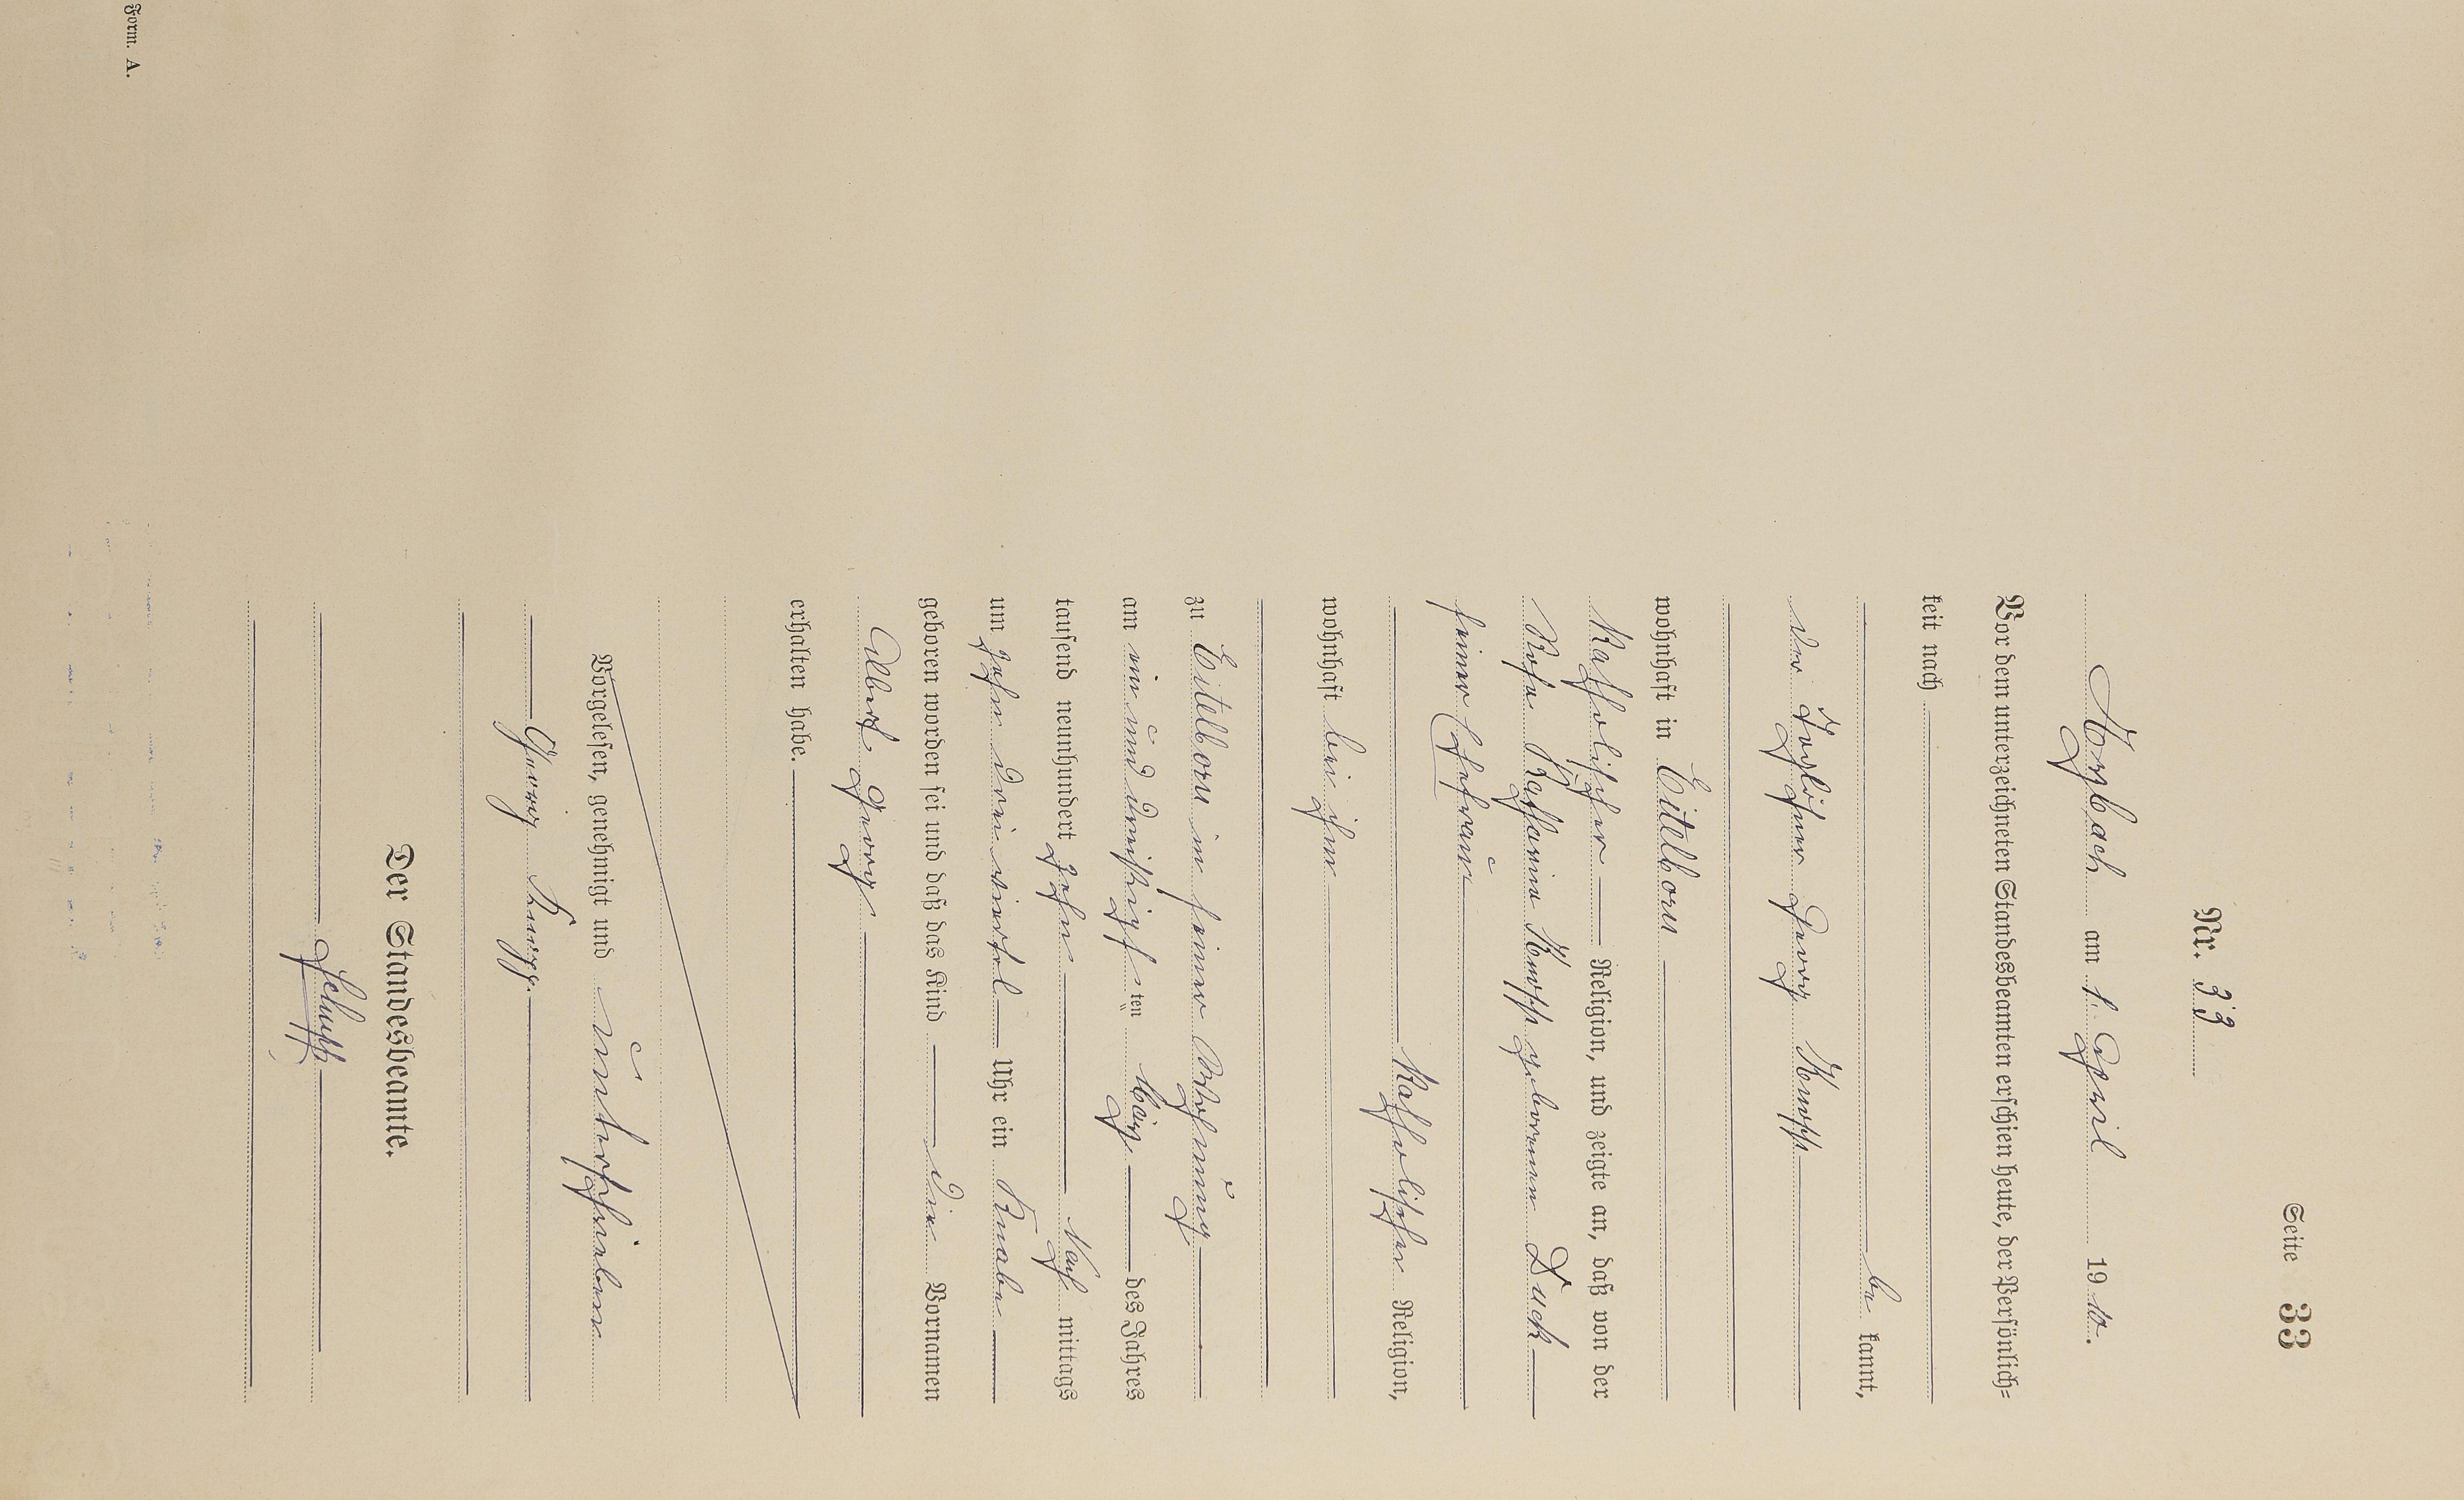 Seite 33
Nr. 33
Arzbach am 1. April 1910.
Vor dem unterzeichneten Standesbeamten erschien heute, der Persönlich=
keit nach
be kannt,
der Taglöhner Georg Knopp
wohnhaft in Eitelborn
Katholischer Religion, und zeigte an, daß von der
Rosa Katharina Knopp geborenen Duck
seiner Ehefrau
Katholischer Religion,
wohnhaft bei ihm
zu Eitelborn in seiner Wohnung
am ein und dreißigsten März des Jahres
tausend neunhundert zehn Nach mittags
um zehn drei viertel Uhr ein Knabe
geboren worden sei und daß das Kind die Vornamen
Albert Georg
erhalten habe.
Vorgelesen, genehmigt und unterschrieben
Georg Knopp.
Der Standesbeamte.
Schupp
Form. A.